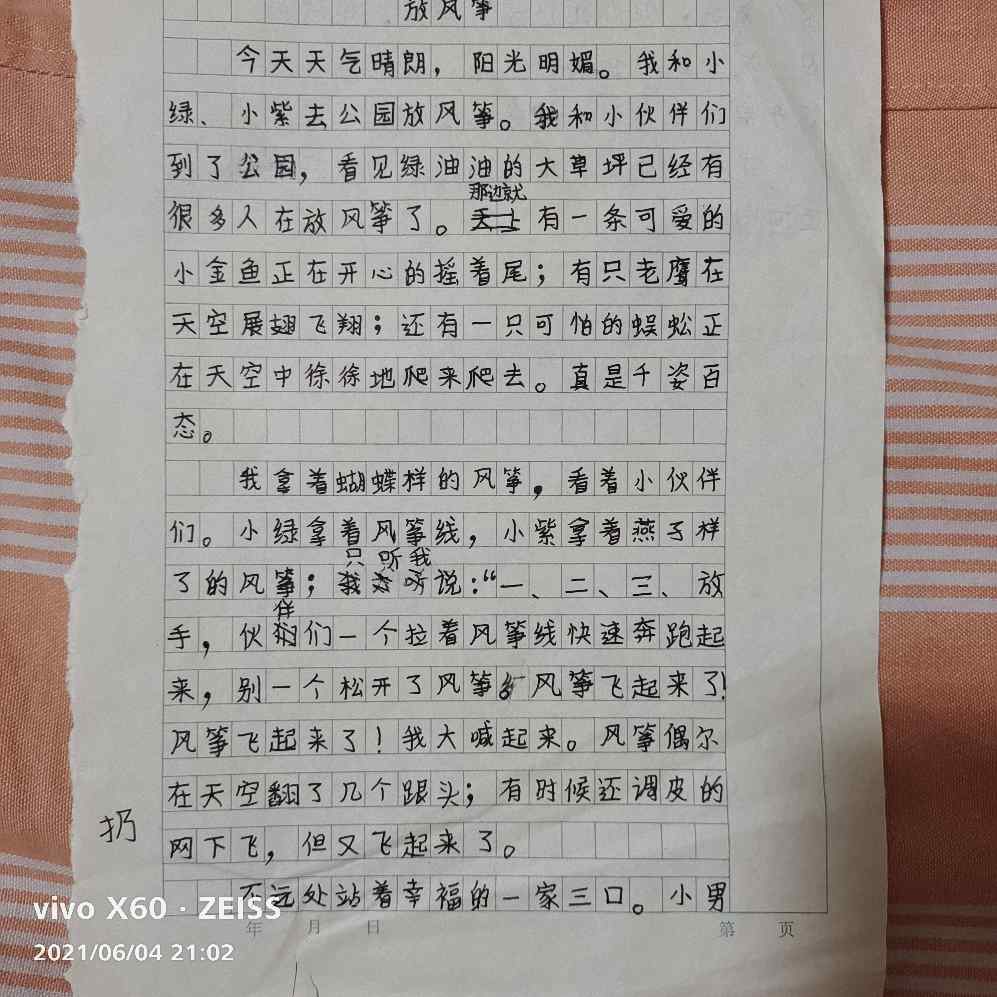 放风筝
今天天气晴朗，阳光明媚。我和小
绿、小紫去公园放风筝。我和小伙伴们
到了公园，看见绿油油的大草坪已经有
那边就
很多人在放风筝了。天上有一条可爱的
小金鱼正在开心的摇着尾；有只老鹰在
天空展翅飞翔；还有一只可怕的蜈蚣正
在天空中徐徐地爬来爬去。真是千姿百
态。
我拿着蝴蝶样的风筝，看着小伙伴
们。小绿拿着风筝线，小紫拿着燕子样
只听我
了的风筝；我 说：“一、二、三、放
伴
手，伙们一个拉着风筝线快速奔跑起
来，别一个松开了风筝。风筝飞起来了！
风筝飞起来了！我大喊起来。风筝偶尔
在天空翻了几个跟头；有时候还调皮的
扔
网下飞，但又飞起来了。
不远处站着幸福的一家三口。小男
年 月 日 第 页
vivo X60 · ZEISS
2021/06/04 21:02